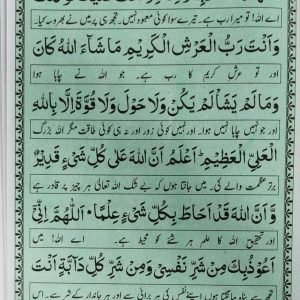 اے اللہ! تو میرا رب ہے۔ تیرے سوا کوئی معبود نہیں۔ تجھ ہی پر میں نے بھروسہ کیا۔
وَاَنْتَ رَبُّ الْعَرْشِ الْكَرِیْمِ مَا شَآءَ اللهُ كَانَ
اور تو عرش کریم کا رب ہے۔ جو اللہ نے چاہا ہوا
وَمَا لَمْ یَشَأْ لَمْ یَكُنْ وَلَا حَوْلَ وَلَا قُوَّةَ اِلَّا بِاللهِ
اور جو نہیں چاہا نہیں ہوا۔ اور نہیں کوئی زور اور نہ ہی کوئی طاقت مگر اللہ بزرگ
الْعَلِیِّ الْعَظِیْمِ ؕ اَعْلَمُ اَنَّ اللهَ عَلٰی كُلِّ شَیْءٍ قَدِیْرٌ
برتر عظمت والے کی۔ میں جانتا ہوں کہ بے شک اللہ تعالیٰ ہر چیز پر قادر ہے
وَّاَنَّ اللهَ قَدْ اَحَاطَ بِكُلِّ شَیْءٍ عِلْمًا ؕ اَللّٰهُمَّ اِنِّیْ
اور تحقیق اللہ کا علم ہر شے کو محیط ہے۔ اے اللہ! میں
اَعُوْذُ بِكَ مِنْ شَرِّ نَفْسِیْ وَمِنْ شَرِّ كُلِّ دَآبَّةٍ اَنْتَ
اپنے نفس کی ہر برائی سے اور ہر جاندار کے شر سے۔ اس